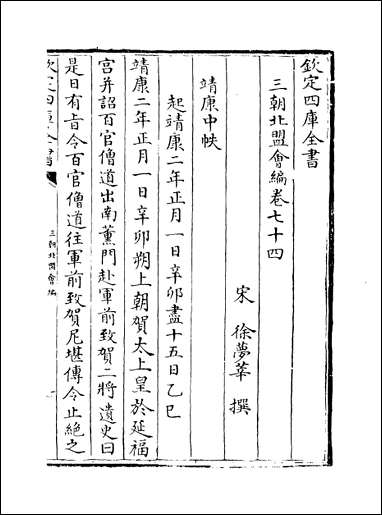 欽定四庫全書
三朝北盟會編卷七十四
宋 徐夢莘 撰
靖康中帙
起靖康二年正月一日辛卯盡十五日乙巳
靖康二年正月一日辛卯朔上朝賀太上皇於延福
宮并詔百官僧道出南薰門赴軍前致賀二將遺史曰
是日有旨令百官僧道往軍前致賀尼堪傳令止絶之
欽定四庫全書
三朝北盟會編